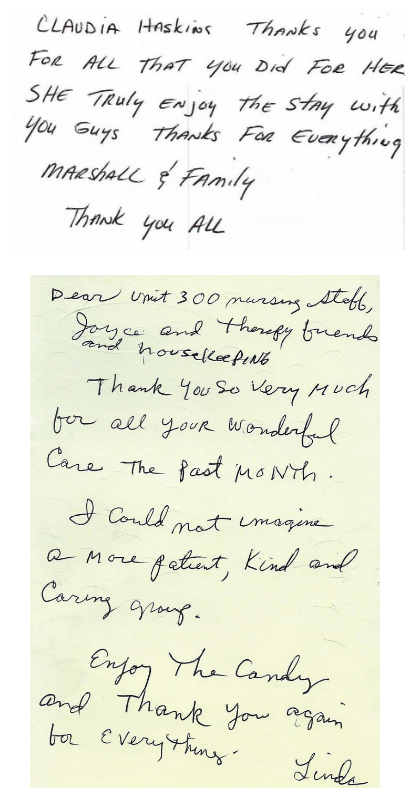 CLAUDIA HASKINS THANKS you
FOR ALL THAT you Did FOR HER
SHE TRuly ENjoy the STAY with
you Guys THANKS FOR EVERything
MARSHALL & FAMily
THANK you ALL
Dear Unit 300 nursing staff,
Joyce and therapy friends
and housekeeping
Thank You So Very Much
for all your wonderful
Care The Past MONTH.
I Could not imagine
a More patient, Kind and
Caring group.
Enjoy The Candy
and Thank You again
for Everything.
Linda